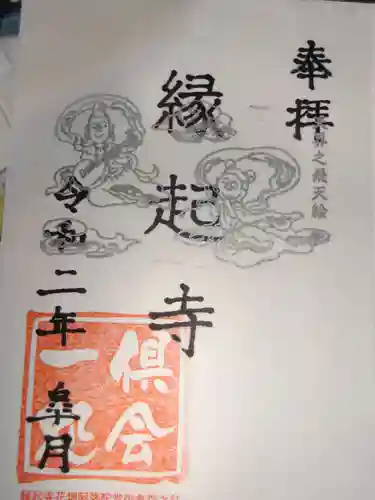 奉拝
世界之飛天絵
縁起寺
令和二年
皐月
倶会
一処